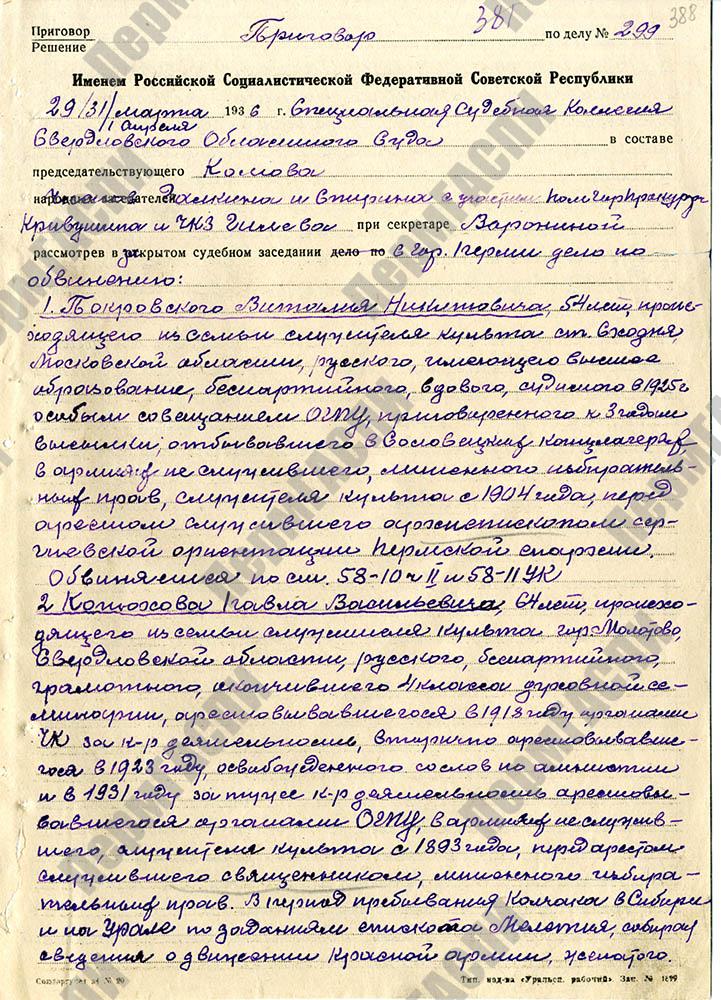 381 388
Приговор
Решение
Приговор по делу № 299
Именем Российской Социалистической Федеративной Советской Республики
29/31/марта 1936 г. Специальная Судебная Коллегия
1 апреля
Свердловского Областного Суда в составе
председательствующего Комова
народных заседателей Галкина и Стирина с участием ПомГорПрокурора
Кривушина и ЧКЗ Гилева при секретаре Ворониной
рассмотрев в закрытом судебном заседании дело по в гор. Перми дело по
обвинению:
1. Покровского Виталия Никитовича, 54 лет, проис-
ходящего из семьи служителя культа ст. Сходня,
Московской области, русского, имеющего высшее
образование, беспартийного, вдового, судимого в 1925 г
особым совещанием ОГПУ, приговоренного к 3 годам
высылки, отбывавшего в Соловецких концлагерях,
в армиях не служившего, лишенного избиратель-
ных прав, служителя культа с 1904 года, перед
арестом служившего архиепископом сер-
гиевской ориентации Пермской епархии.
Обвиняемся по ст. 58-10 ч II и 58-11 УК
2 Конюхова Павла Васильевича, 64 лет, происхо-
дящего из семьи служителя культа гор. Молотово,
Свердловской области, русского, беспартийного,
грамотного, окончившего 4 класса духовной се-
минарии, арестовывавшегося в 1918 году органами
ЧК за к-р деятельность, вторично арестовывавше-
гося в 1923 году, освобожденного со слов по амнистии
и в 1931 году за тусе к-р деятельность арестовы-
вавшегося органами ОГПУ, в армиях не служив-
шего, служителя культа с 1893 года, перед арестом
служившего священником, лишенного избира-
тельных прав. В период пребывания Колчака в Сибири
и на Урале по заданиям епископа Мелетия, собирал
сведения о движении Красной армии, женатого.
Соцлартур № 20 Тип. изд-ва «Уральск. рабочий». Зак. № 1899
ПермГАСПИ